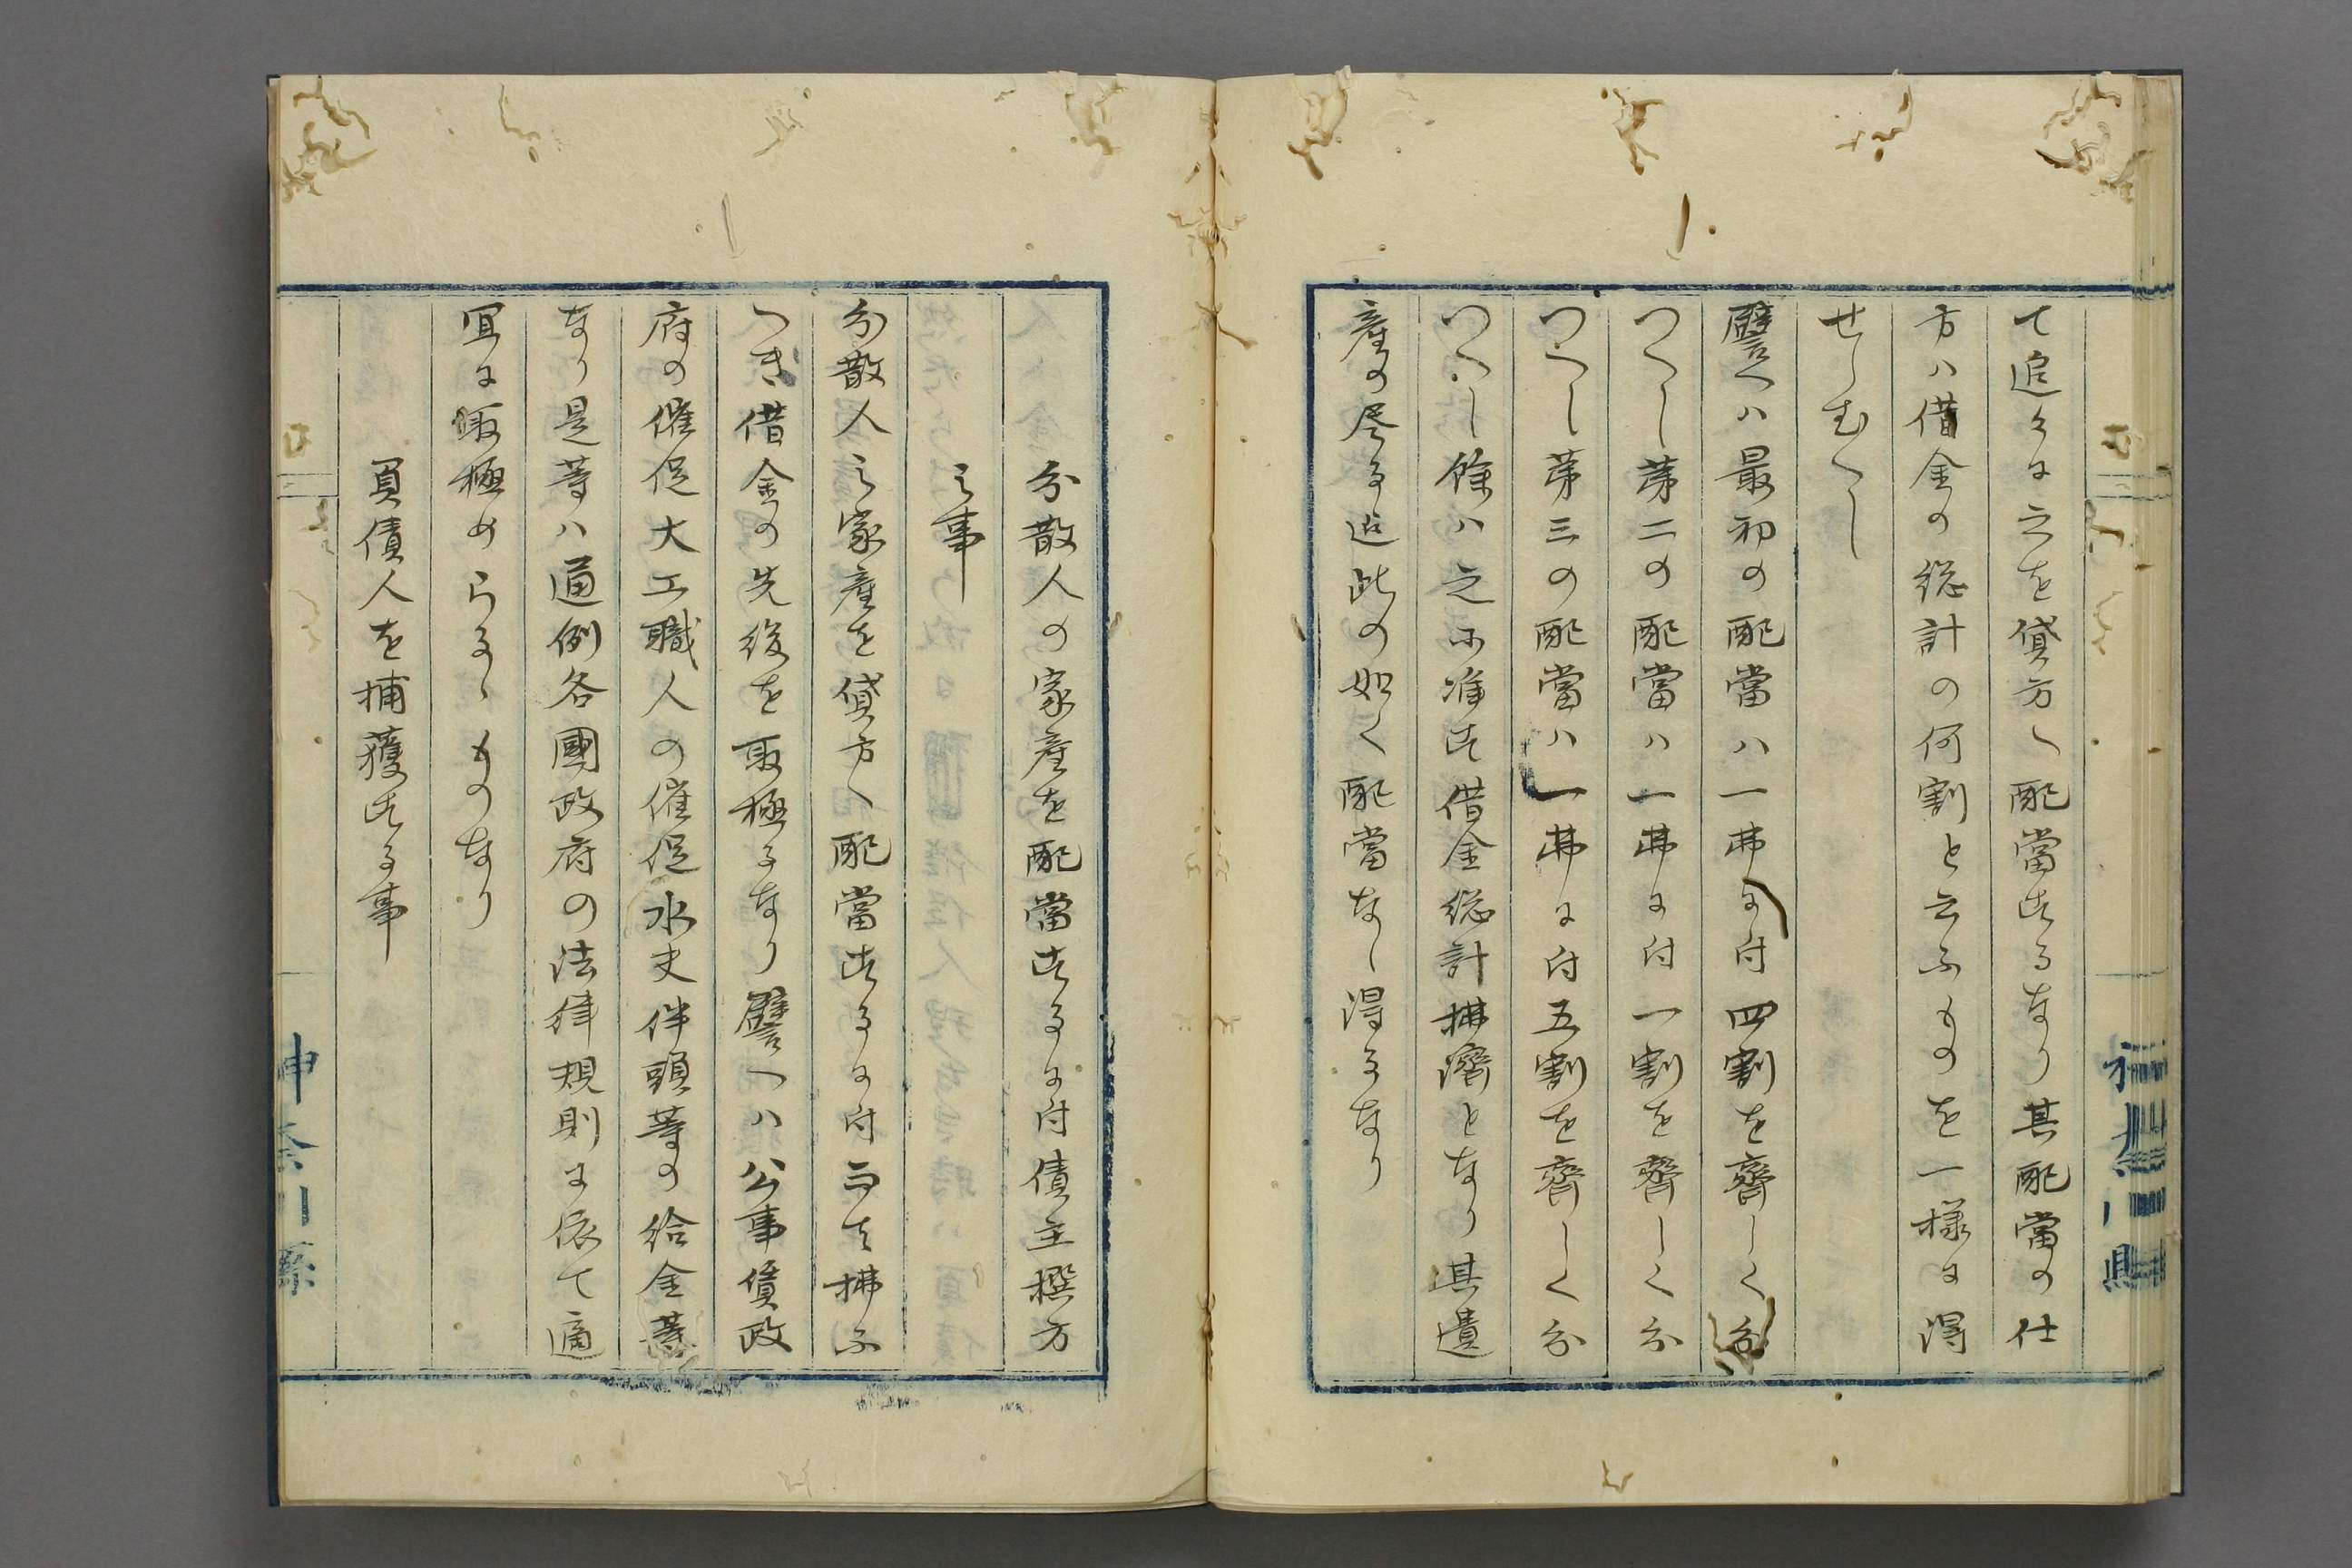 て追々に之を貸方へ配當するなり其配當の仕
方ハ借金の総計の何割と云ふものを一様に得
せしむへし
譬へハ最初の配當ハ一弗に付四割を齊しく分
つへし第二の配當ハ一弗に付一割を齊しく分
つへし第三の配當ハ一弗に付五割を齊しく分
つへし餘ハ之に准し借金総計拂濟となり其遺
産の尽る迄此の如く配當なし得るなり
分散人の家産を配當するに付債主撰方
之事
分散人之家産を貸方へ配當するに付而て拂ふ
へき借金の先後を取極るなり譬へハ公事債政
府の催促大工職人の催促水夫伴頭等の給金等
なり是等ハ通例各國政府の法律規則に依て適
宜に取極めらるゝものなり
負債人を捕獲する事
神奈川縣